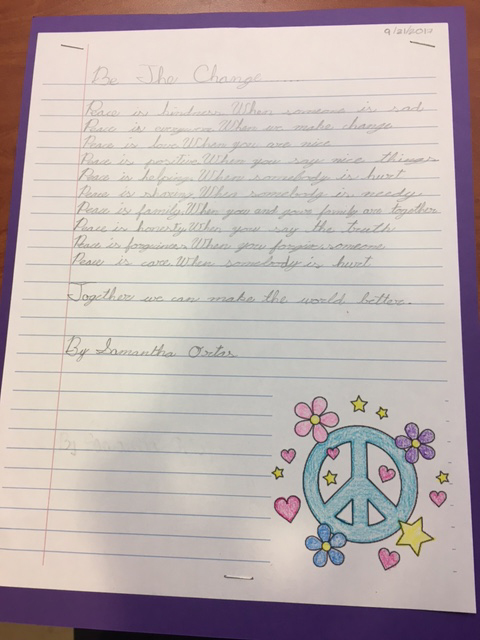 9/21/201
Be The Change......
Peace is kindness When someone is sad
Peace is everyone When we make change
Peace is love When you are nice
Peace is positive When you say nice things
Peace is helping When somebody is hurt
Peace is sharing When somebody is needy
Peace is family When you and your family are together
Peace is honesty When you say the truth
Peace is forgivness When you forgive someone
Peace is care When somebody is hurt
Together we can make the world better.
By Samantha